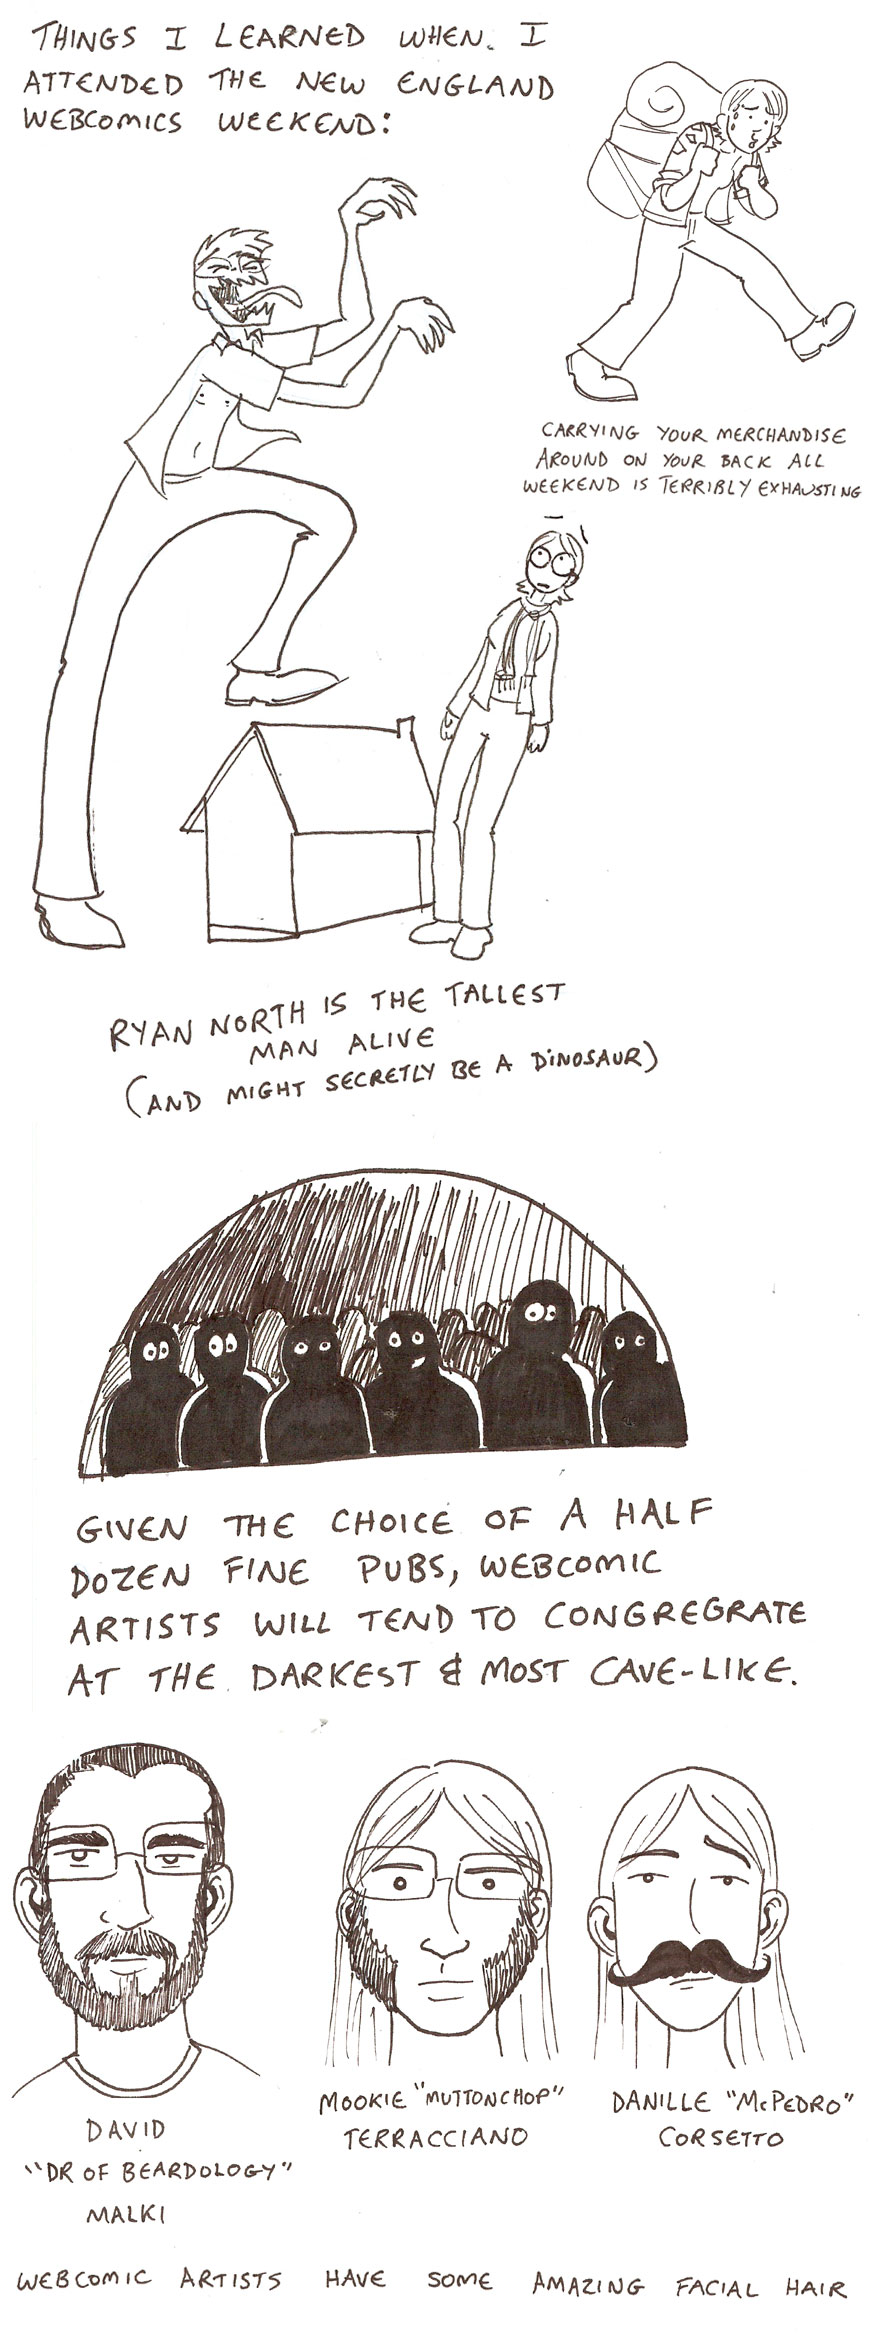 THINGS I LEARNED WHEN I
ATTENDED THE NEW ENGLAND
WEBCOMICS WEEKEND:
CARRYING YOUR MERCHANDISE
AROUND ON YOUR BACK ALL
WEEKEND IS TERRIBLY EXHAUSTING
RYAN NORTH IS THE TALLEST
MAN ALIVE
(AND MIGHT SECRETLY BE A DINOSAUR)
GIVEN THE CHOICE OF A HALF
DOZEN FINE PUBS, WEBCOMIC
ARTISTS WILL TEND TO CONGREGRATE
AT THE DARKEST & MOST CAVE-LIKE.
DAVID
"DR OF BEARDOLOGY"
MALKI
MOOKIE "MUTTONCHOP"
TERRACCIANO
DANILLE "McPEDRO"
CORSETTO
WEBCOMIC ARTISTS HAVE SOME AMAZING FACIAL HAIR